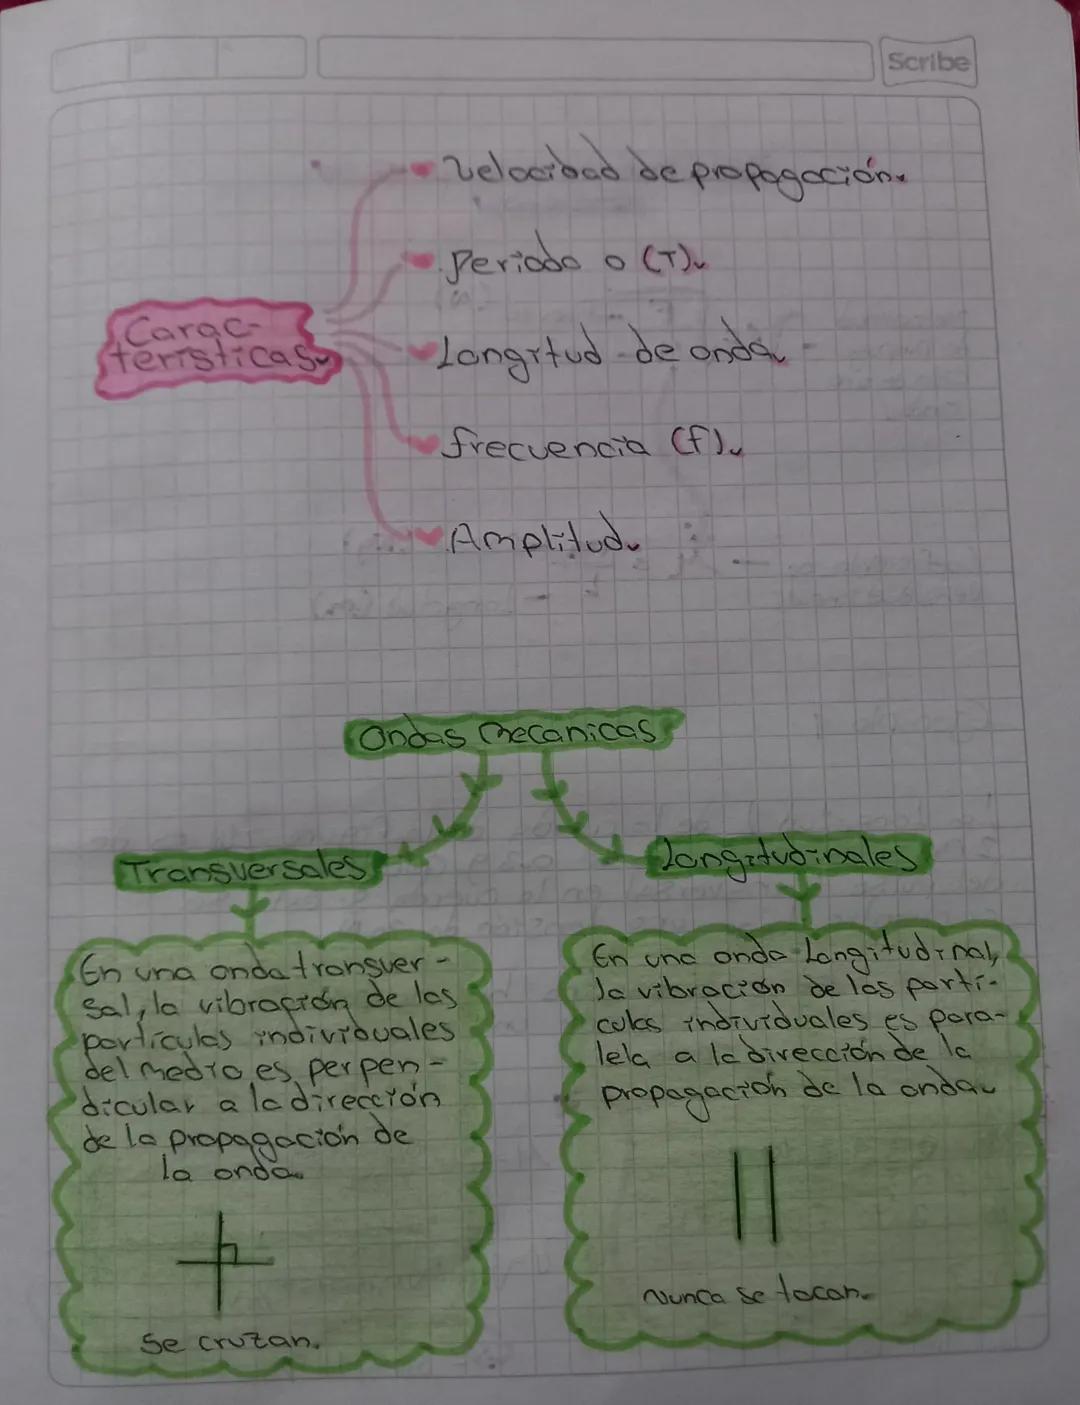 Scribe
Velocidad de propagación.
Periodo o (T).
Carac-
terísticas.
Longitud de onda.
frecuencia (f).
Amplitud.
Ondas mecanicas
Transversales
Longitudinales
En una onda transver-
sal, la vibración de las
partículas individuales
del medio es perpen-
dicular a la dirección
de la propagación de
la onda.
Se cruzan.
En una onda Longitudinal,
la vibración de las partí-
culas individuales es para-
lela a la dirección de la
propagación de la onda.
Nunca se tocan.